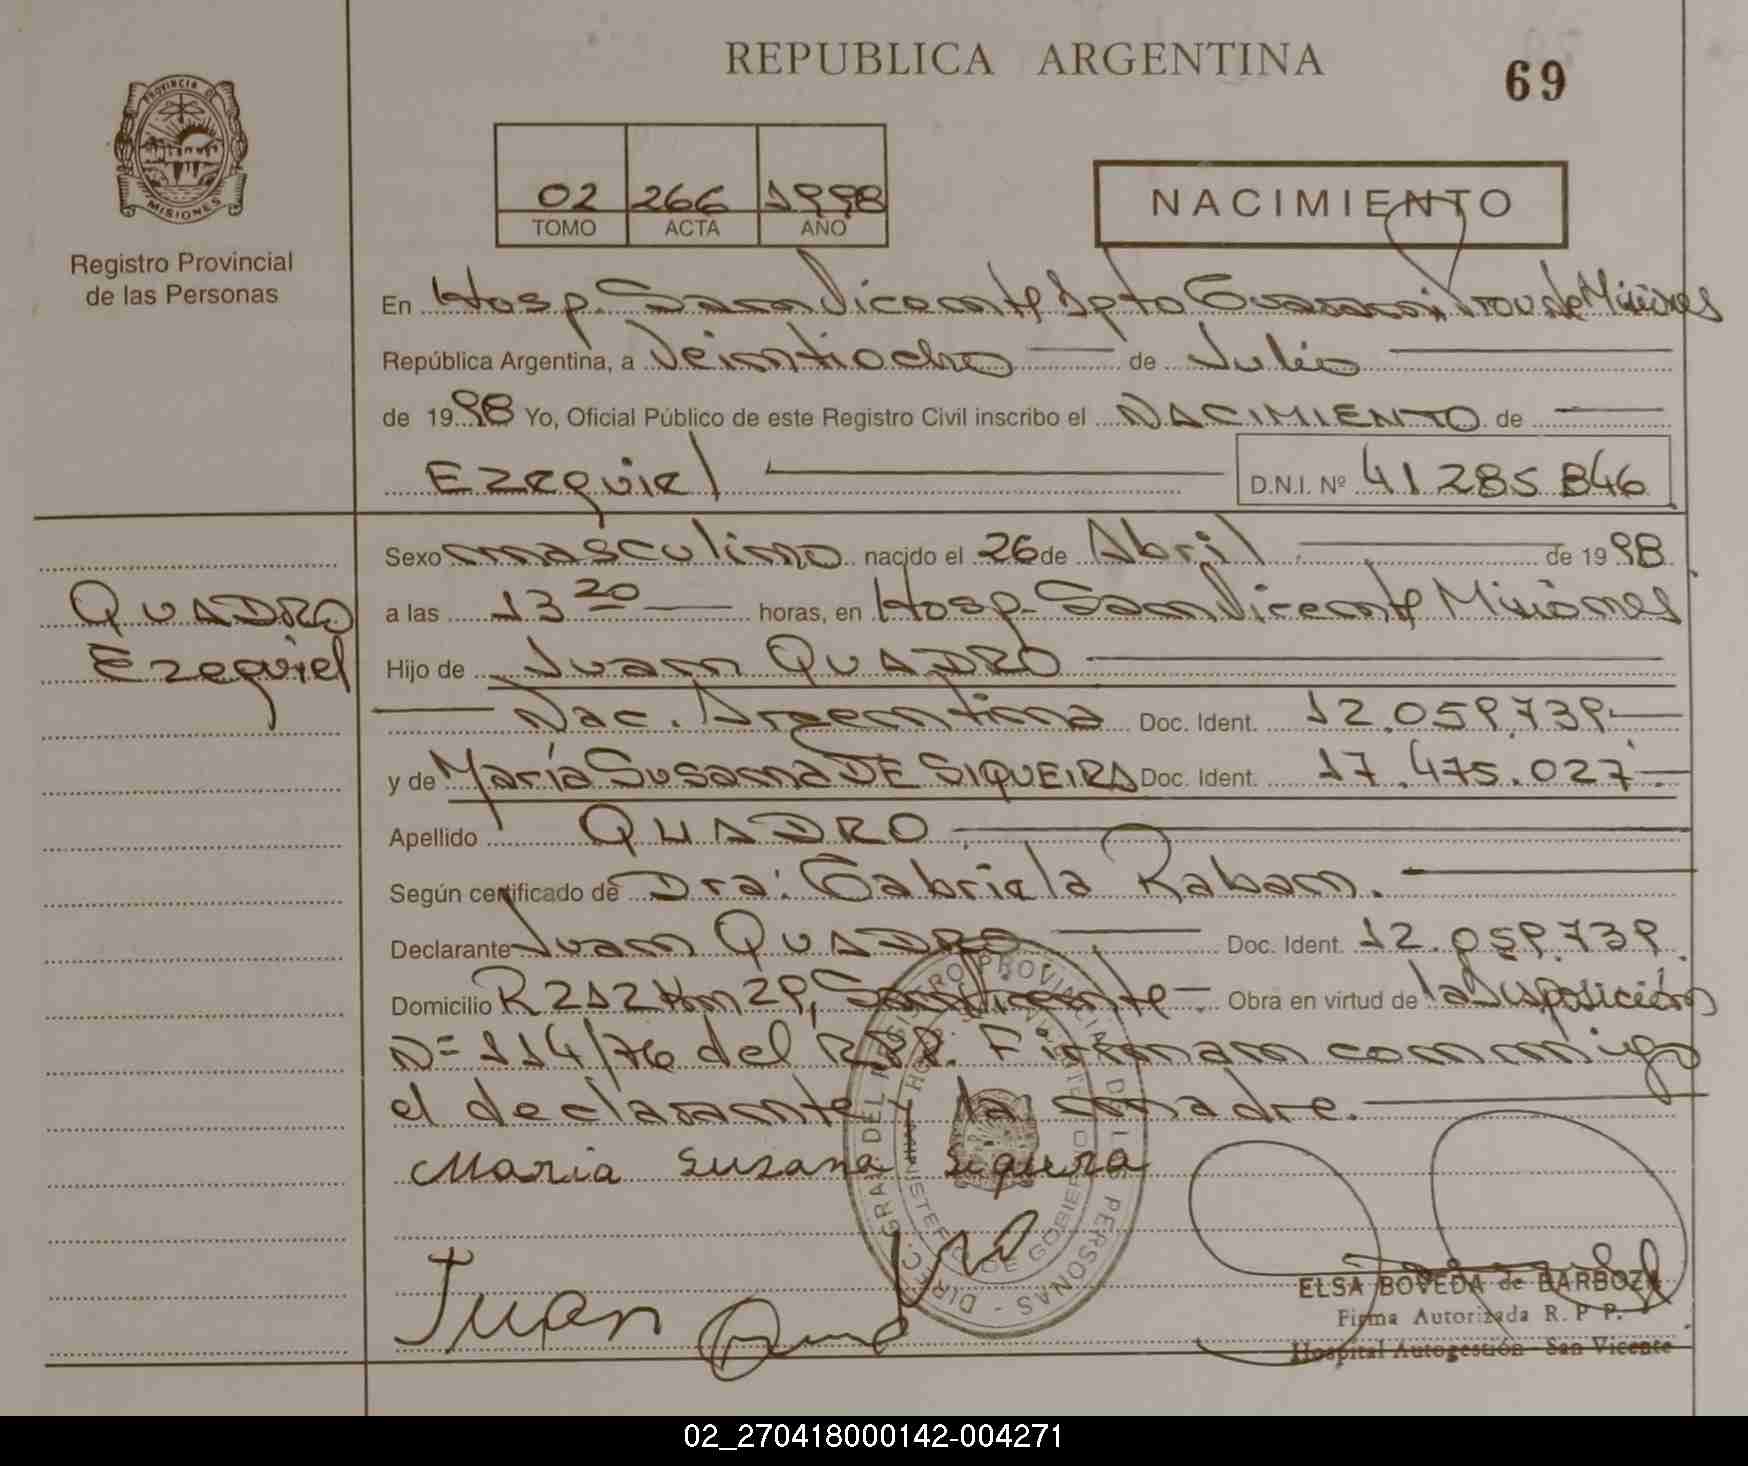 REPUBLICA ARGENTINA
69
PROVINCIA DE
MISIONES
Registro Provincial
de las Personas
02 266 1998
TOMO ACTA AÑO
NACIMIENTO
En Hosp. San Vicente Dpto Guaraní Prov de Misiones
República Argentina, a Veintiocho de Julio
de 1998 Yo, Oficial Público de este Registro Civil inscribo el NACIMIENTO de
Ezequiel D.N.I. Nº 41285846
QUADRO
Ezequiel
Sexo masculino nacido el 26 de Abril de 1998
a las 13 20 horas, en Hosp. San Vicente Misiones
Hijo de Juan QUADRO
Nac. Argentina Doc. Ident. 12.059.739
y de María Susana DE SIQUEIRA Doc. Ident. 17.475.027
Apellido QUADRO
Según certificado de Dra: Gabriela Raban.
Declarante Juan QUADRO Doc. Ident. 12.059.739
Domicilio R212 Km 29, San Vicente Obra en virtud de la Disposición
Nº 114/76 del RPP. Firman conmigo
el declarante y la madre.
Maria Suzana Siquera
Juan
ELSA BOVEDA de BARBOZA
Firma Autorizada R. P P.
Hospital Autogestión - San Vicente
02_270418000142-004271